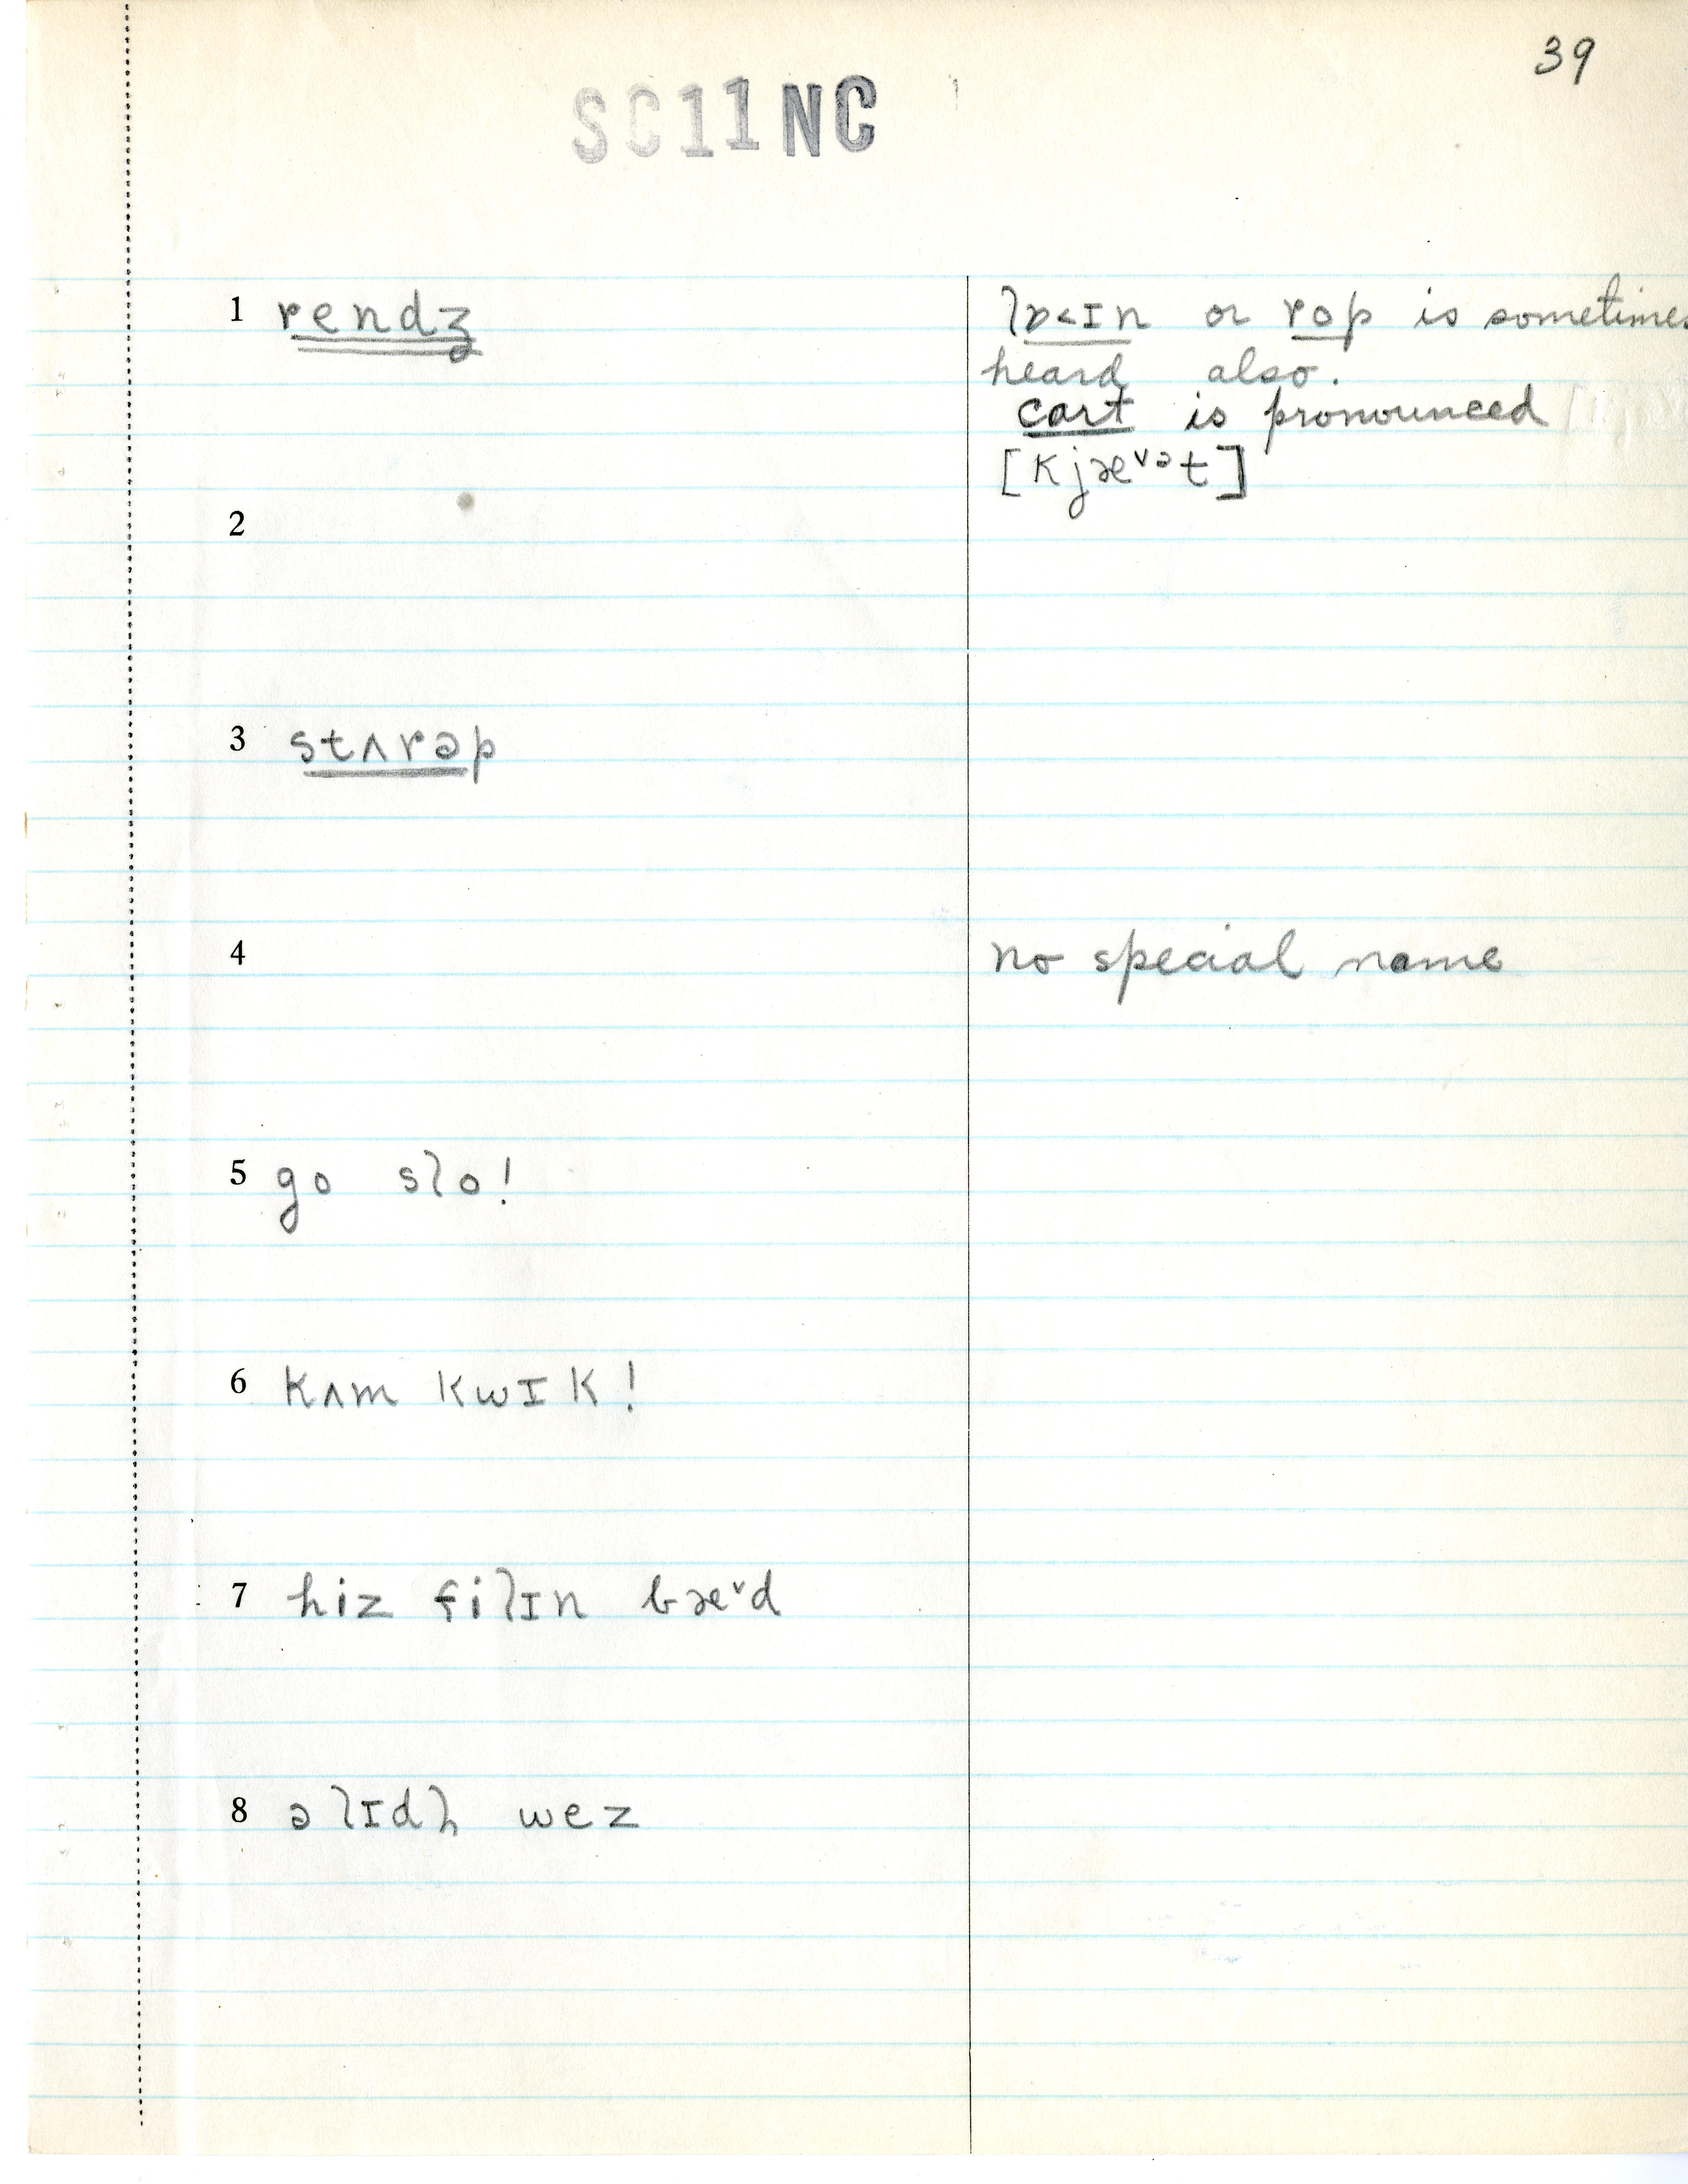 39
SC11NC
1 rendʒ
lɒ<ɪn or rop is sometimes
heard also.
cart is pronounced
[kjæᵛᵊt]
2
3 stʌrəp
4 no special name
5 go slo!
6 kʌm kwɪk!
7 hiz filɪn bæᵛd
8 ə lɪdl̩ wez